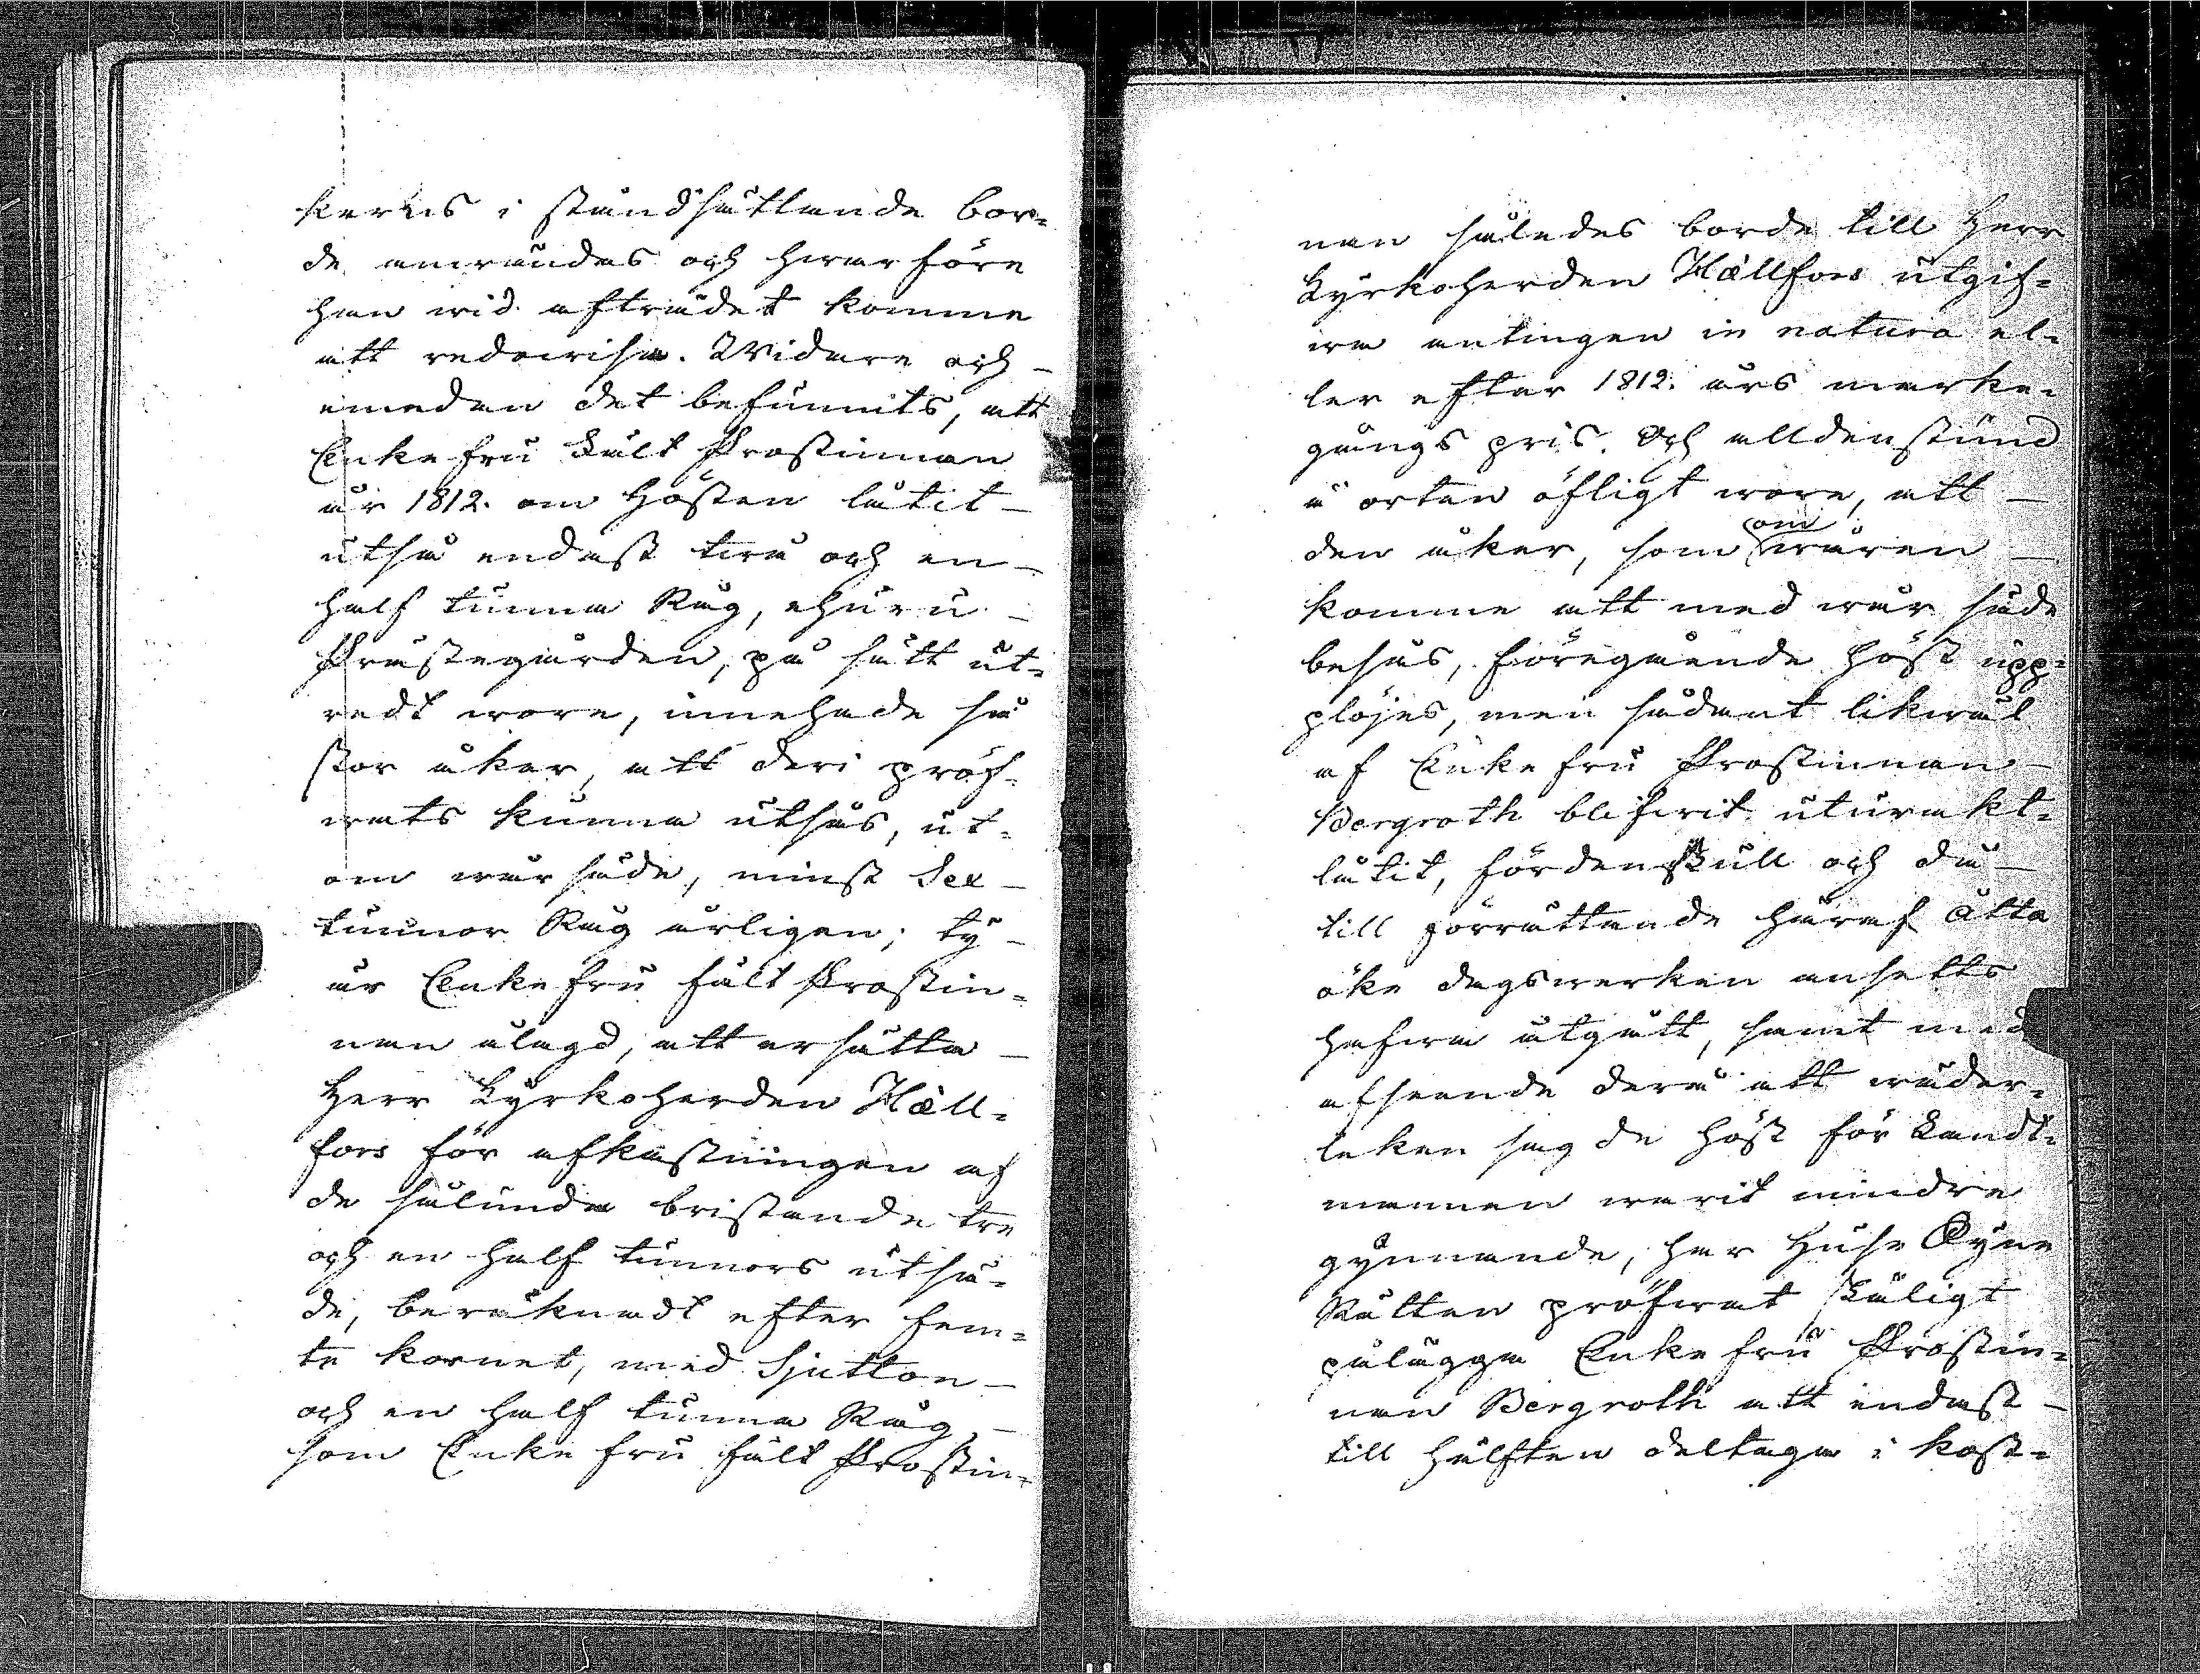 kerns i ståndsättande bor=
de anwändas och hwarföre
han wid afträdet komme
att redowisa. Widare och -
emedan det befunnits, att
Enkefru Fält Prostinnan
år 1812. om Hösten låtit -
utså endast twå och en -
half tunna Råg, ehuru -
Prästegården, på sätt ut=
redt wore, innehade så
stor åker, att deri pröf=
wats kunna utsås, ut=
om wårsäde, minst Sex -
tunnor Råg årligen; ty -
är Enkefru Fält Prostin=
nan ålagd, att ersätta -
Herr Kyrkoherden Häll=
fors för afkastningen af
de sålunda bristande tre
och en half tunnors utsä=
de, beräknadt efter fem=
te kornet, med Sjutton -
och en half tunna Råg -
som Enkefru Fält Prostin=
nan således borde till Herr
Kyrkoherden Hällfors utgif=
wa antingen in natura el=
ler efter 1812. års marke=
gångs pris. Och alldenstund
å orten öfligt wore, att -
den åker, som om wåren -
komme att med wår säde
besås, föregående höst upp=
plöjes, men sådant likwäl
af Enkefru Prostinnan -
Bergroth blifwit uturakt=
låtit, fördenskull och då -
till förrättande häraf Åtta
öke dagswerken ansetts
hafwa åtgått, samt med
afseende derå att wäder=
leken sagde höst för Landt=
mannen warit mindre
gynnande, har Huse Syne
Rätten pröfwat skäligt
pålägga Enkefru Prostin=
nan Bergroth att endast -
till hälften deltaga i kost=